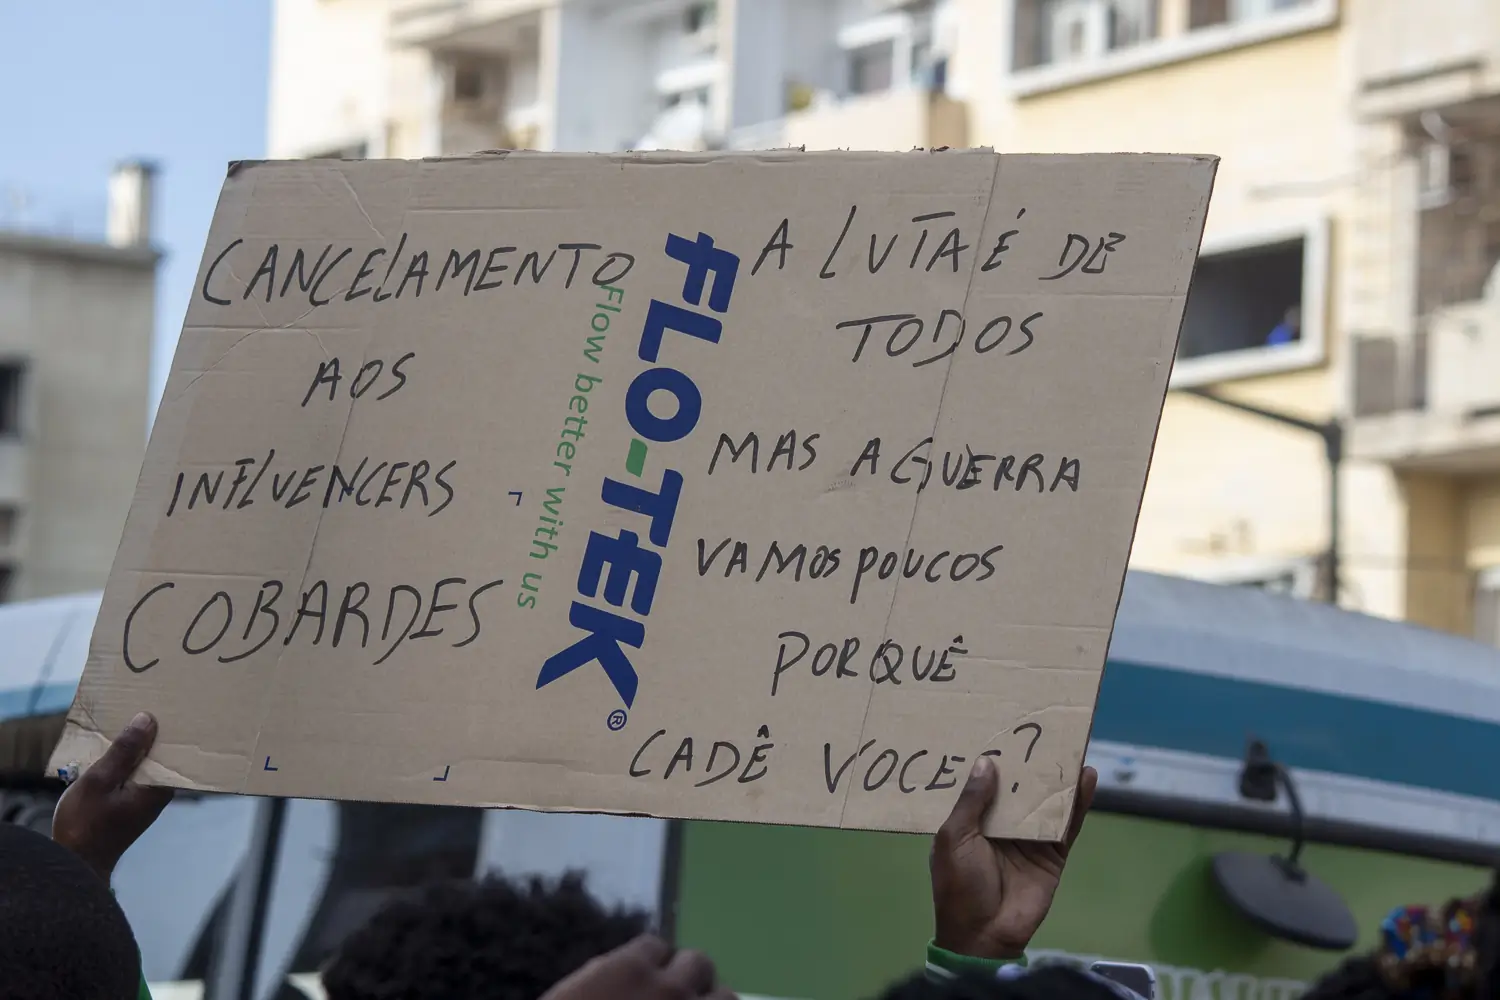 CANCELAMENTO
AOS
INFLUENCERS
COBARDES
FLO-TEK®
Flow better with us
A LUTA É DE
TODOS
MAS A GUERRA
VAMOS POUCOS
PORQUÊ
CADÊ VOCES?